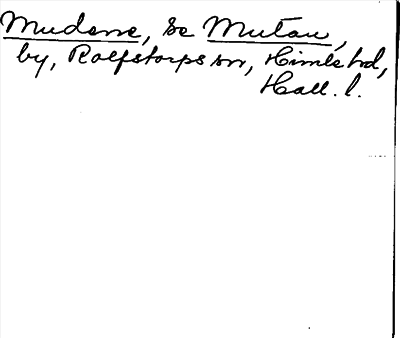 Mudene, se Mutau,
by, Rolfstorps sn, Himle hd,
Hall. l.